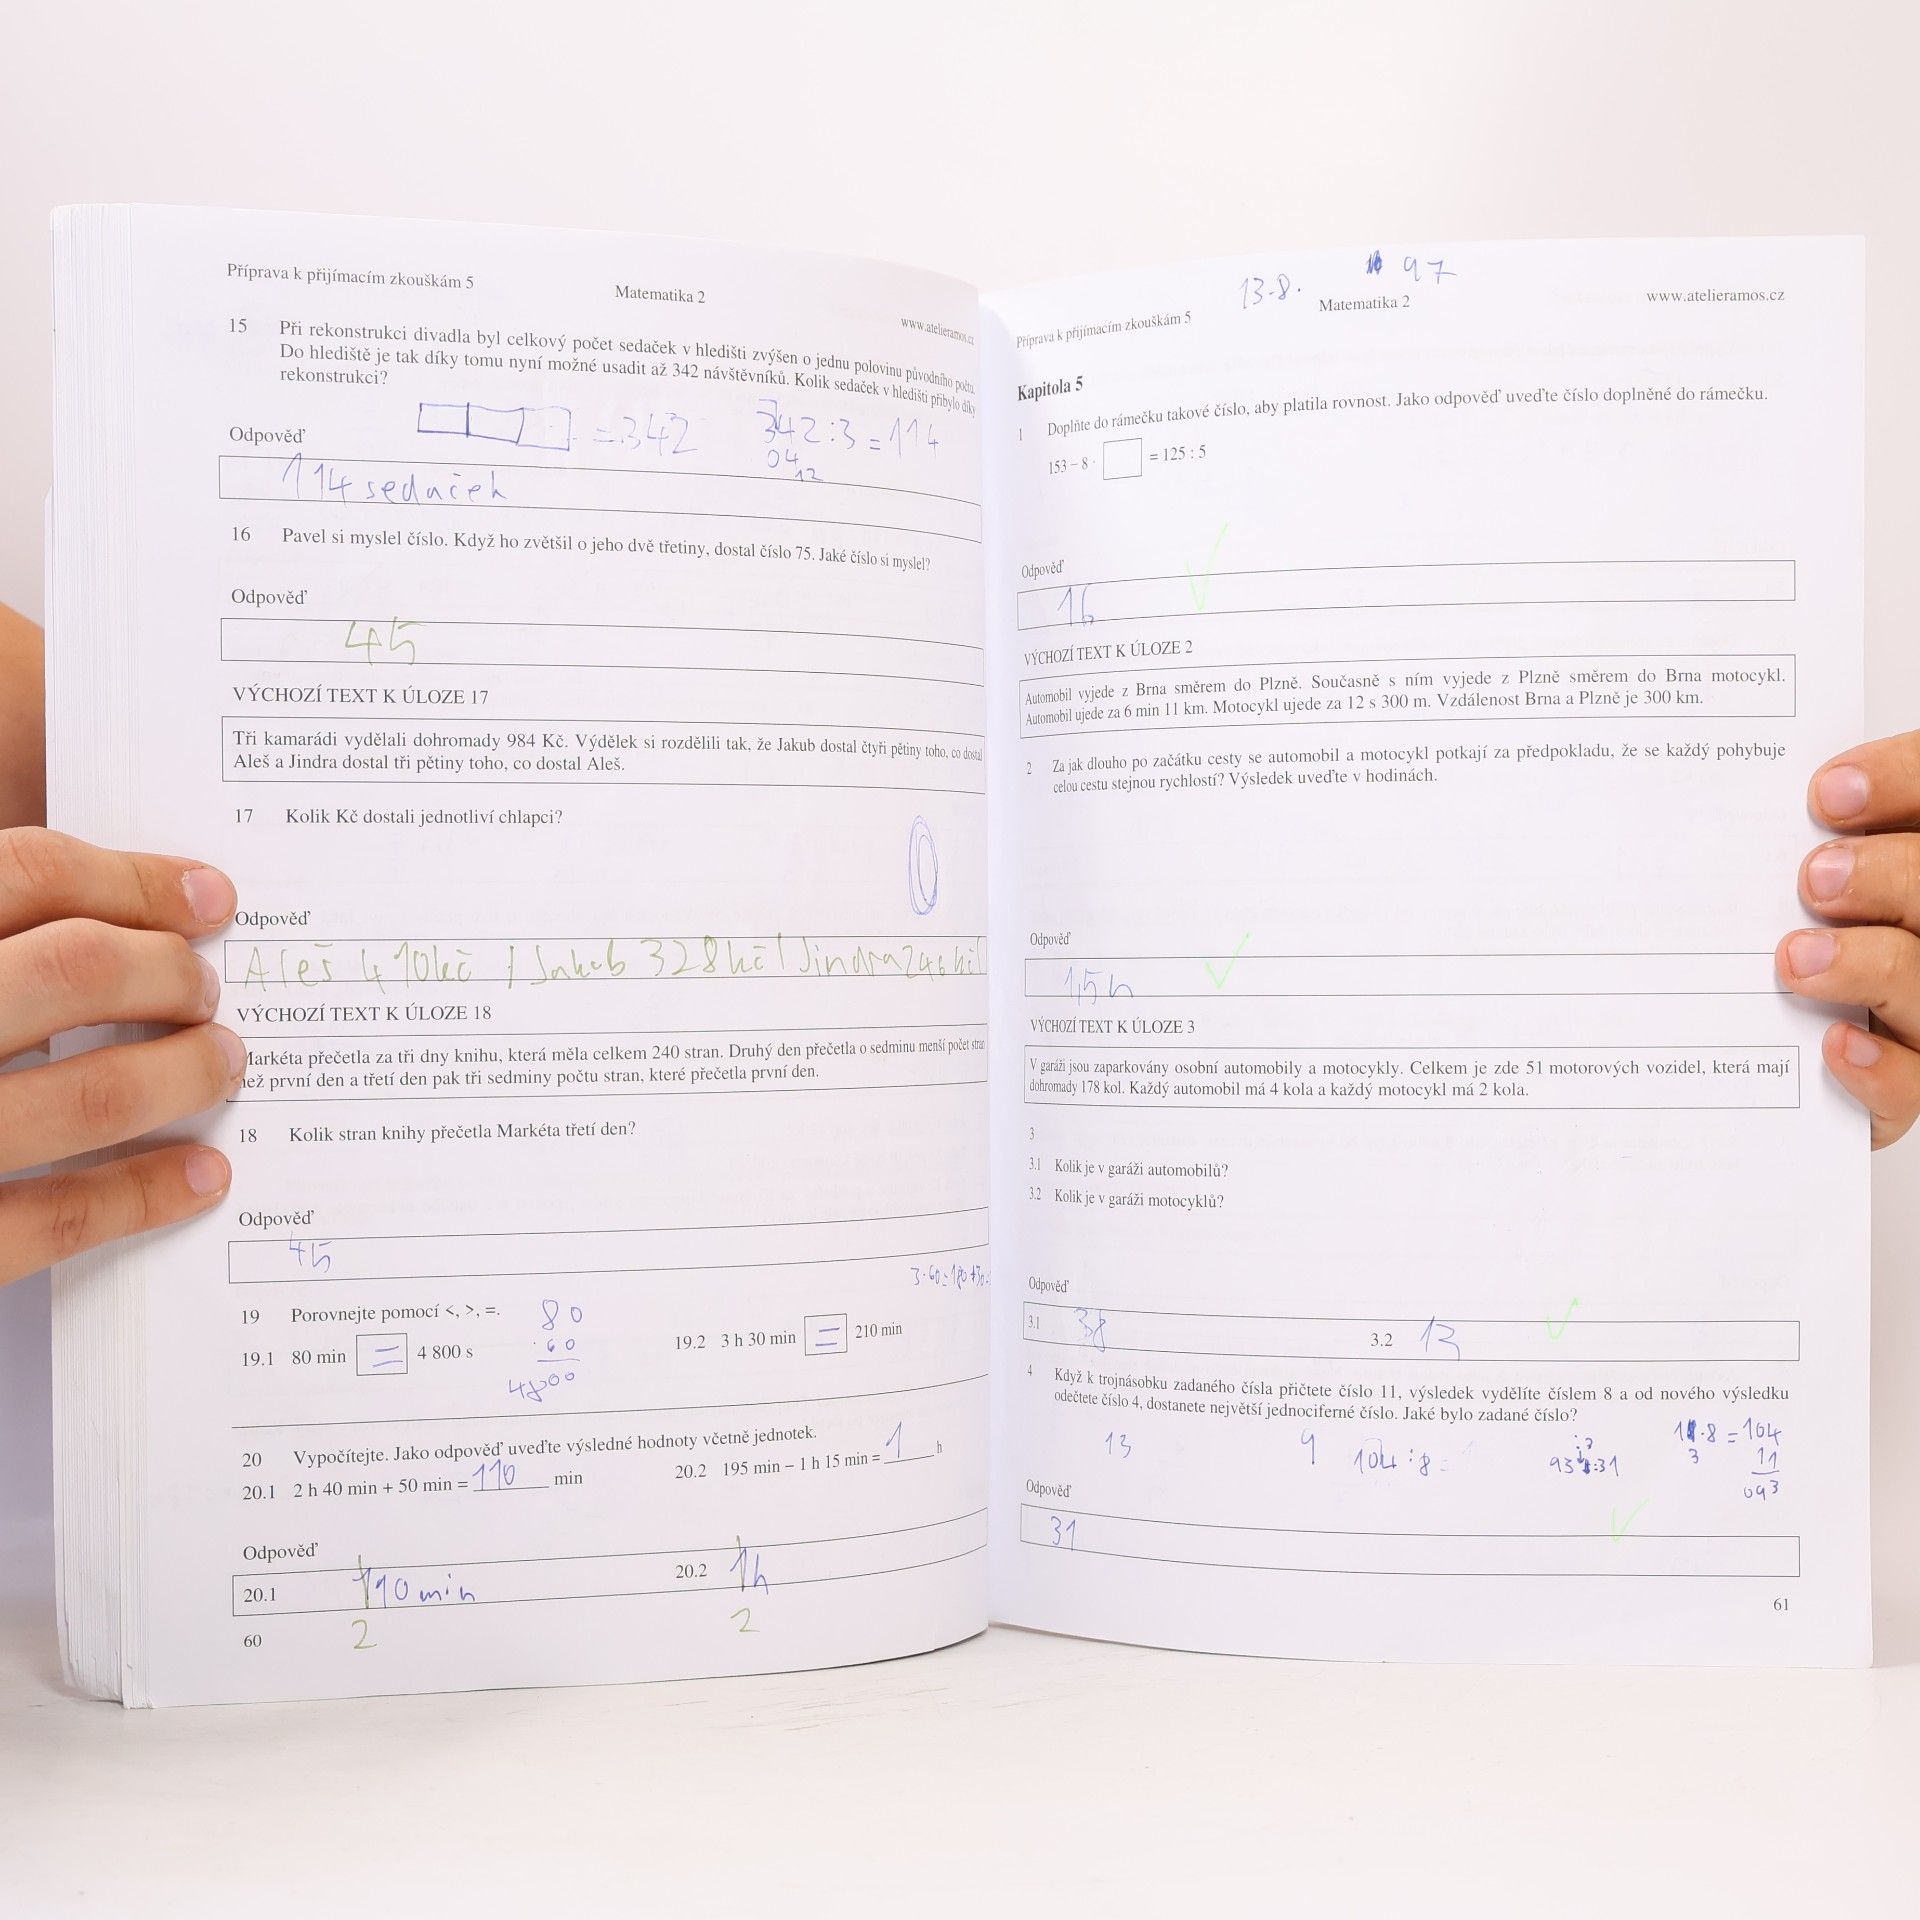 Příprava k přijímacím zkouškám 5
Matematika 2
www.atelieramos.cz
15 Při rekonstrukci divadla byl celkový počet sedaček v hledišti zvýšen o jednu polovinu původního počtu.
Do hlediště je tak díky tomu nyní možné usadit až 342 návštěvníků. Kolik sedaček v hledišti přibylo díky
rekonstrukci?
= 342
342 : 3 = 114
04
12
Odpověď
114 sedaček
16 Pavel si myslel číslo. Když ho zvětšil o jeho dvě třetiny, dostal číslo 75. Jaké číslo si myslel?
Odpověď
45
VÝCHOZÍ TEXT K ÚLOZE 17
Tři kamarádi vydělali dohromady 984 Kč. Výdělek si rozdělili tak, že Jakub dostal čtyři pětiny toho, co dostal
Aleš a Jindra dostal tři pětiny toho, co dostal Aleš.
17 Kolik Kč dostali jednotliví chlapci?
0
Odpověď
Aleš 410kč / Jakub 328kč / Jindra 246 kč
VÝCHOZÍ TEXT K ÚLOZE 18
Markéta přečetla za tři dny knihu, která měla celkem 240 stran. Druhý den přečetla o sedminu menší počet stran
než první den a třetí den pak tři sedminy počtu stran, které přečetla první den.
18 Kolik stran knihy přečetla Markéta třetí den?
Odpověď
45
3·60=180+30=
19 Porovnejte pomocí <, >, =.
80
·60
4800
19.1 80 min = 4 800 s
19.2 3 h 30 min = 210 min
20 Vypočítejte. Jako odpověď uveďte výsledné hodnoty včetně jednotek.
20.1 2 h 40 min + 50 min = 110 min
20.2 195 min – 1 h 15 min = 1 h
Odpověď
20.1 110 min
20.2 1h
2
2
60
13·8·
97
Příprava k přijímacím zkouškám 5
Matematika 2
www.atelieramos.cz
Kapitola 5
1 Doplňte do rámečku takové číslo, aby platila rovnost. Jako odpověď uveďte číslo doplněné do rámečku.
153 – 8 · = 125 : 5
Odpověď
16
VÝCHOZÍ TEXT K ÚLOZE 2
Automobil vyjede z Brna směrem do Plzně. Současně s ním vyjede z Plzně směrem do Brna motocykl.
Automobil ujede za 6 min 11 km. Motocykl ujede za 12 s 300 m. Vzdálenost Brna a Plzně je 300 km.
2 Za jak dlouho po začátku cesty se automobil a motocykl potkají za předpokladu, že se každý pohybuje
celou cestu stejnou rychlostí? Výsledek uveďte v hodinách.
Odpověď
1,5 h
VÝCHOZÍ TEXT K ÚLOZE 3
V garáži jsou zaparkovány osobní automobily a motocykly. Celkem je zde 51 motorových vozidel, která mají
dohromady 178 kol. Každý automobil má 4 kola a každý motocykl má 2 kola.
3
3.1 Kolik je v garáži automobilů?
3.2 Kolik je v garáži motocyklů?
Odpověď
3.1 38
3.2 13
4 Když k trojnásobku zadaného čísla přičtete číslo 11, výsledek vydělíte číslem 8 a od nového výsledku
odečtete číslo 4, dostanete největší jednociferné číslo. Jaké bylo zadané číslo?
13
9
104 : 8 =
·8 = 104
3
11
093
Odpověď
31
61